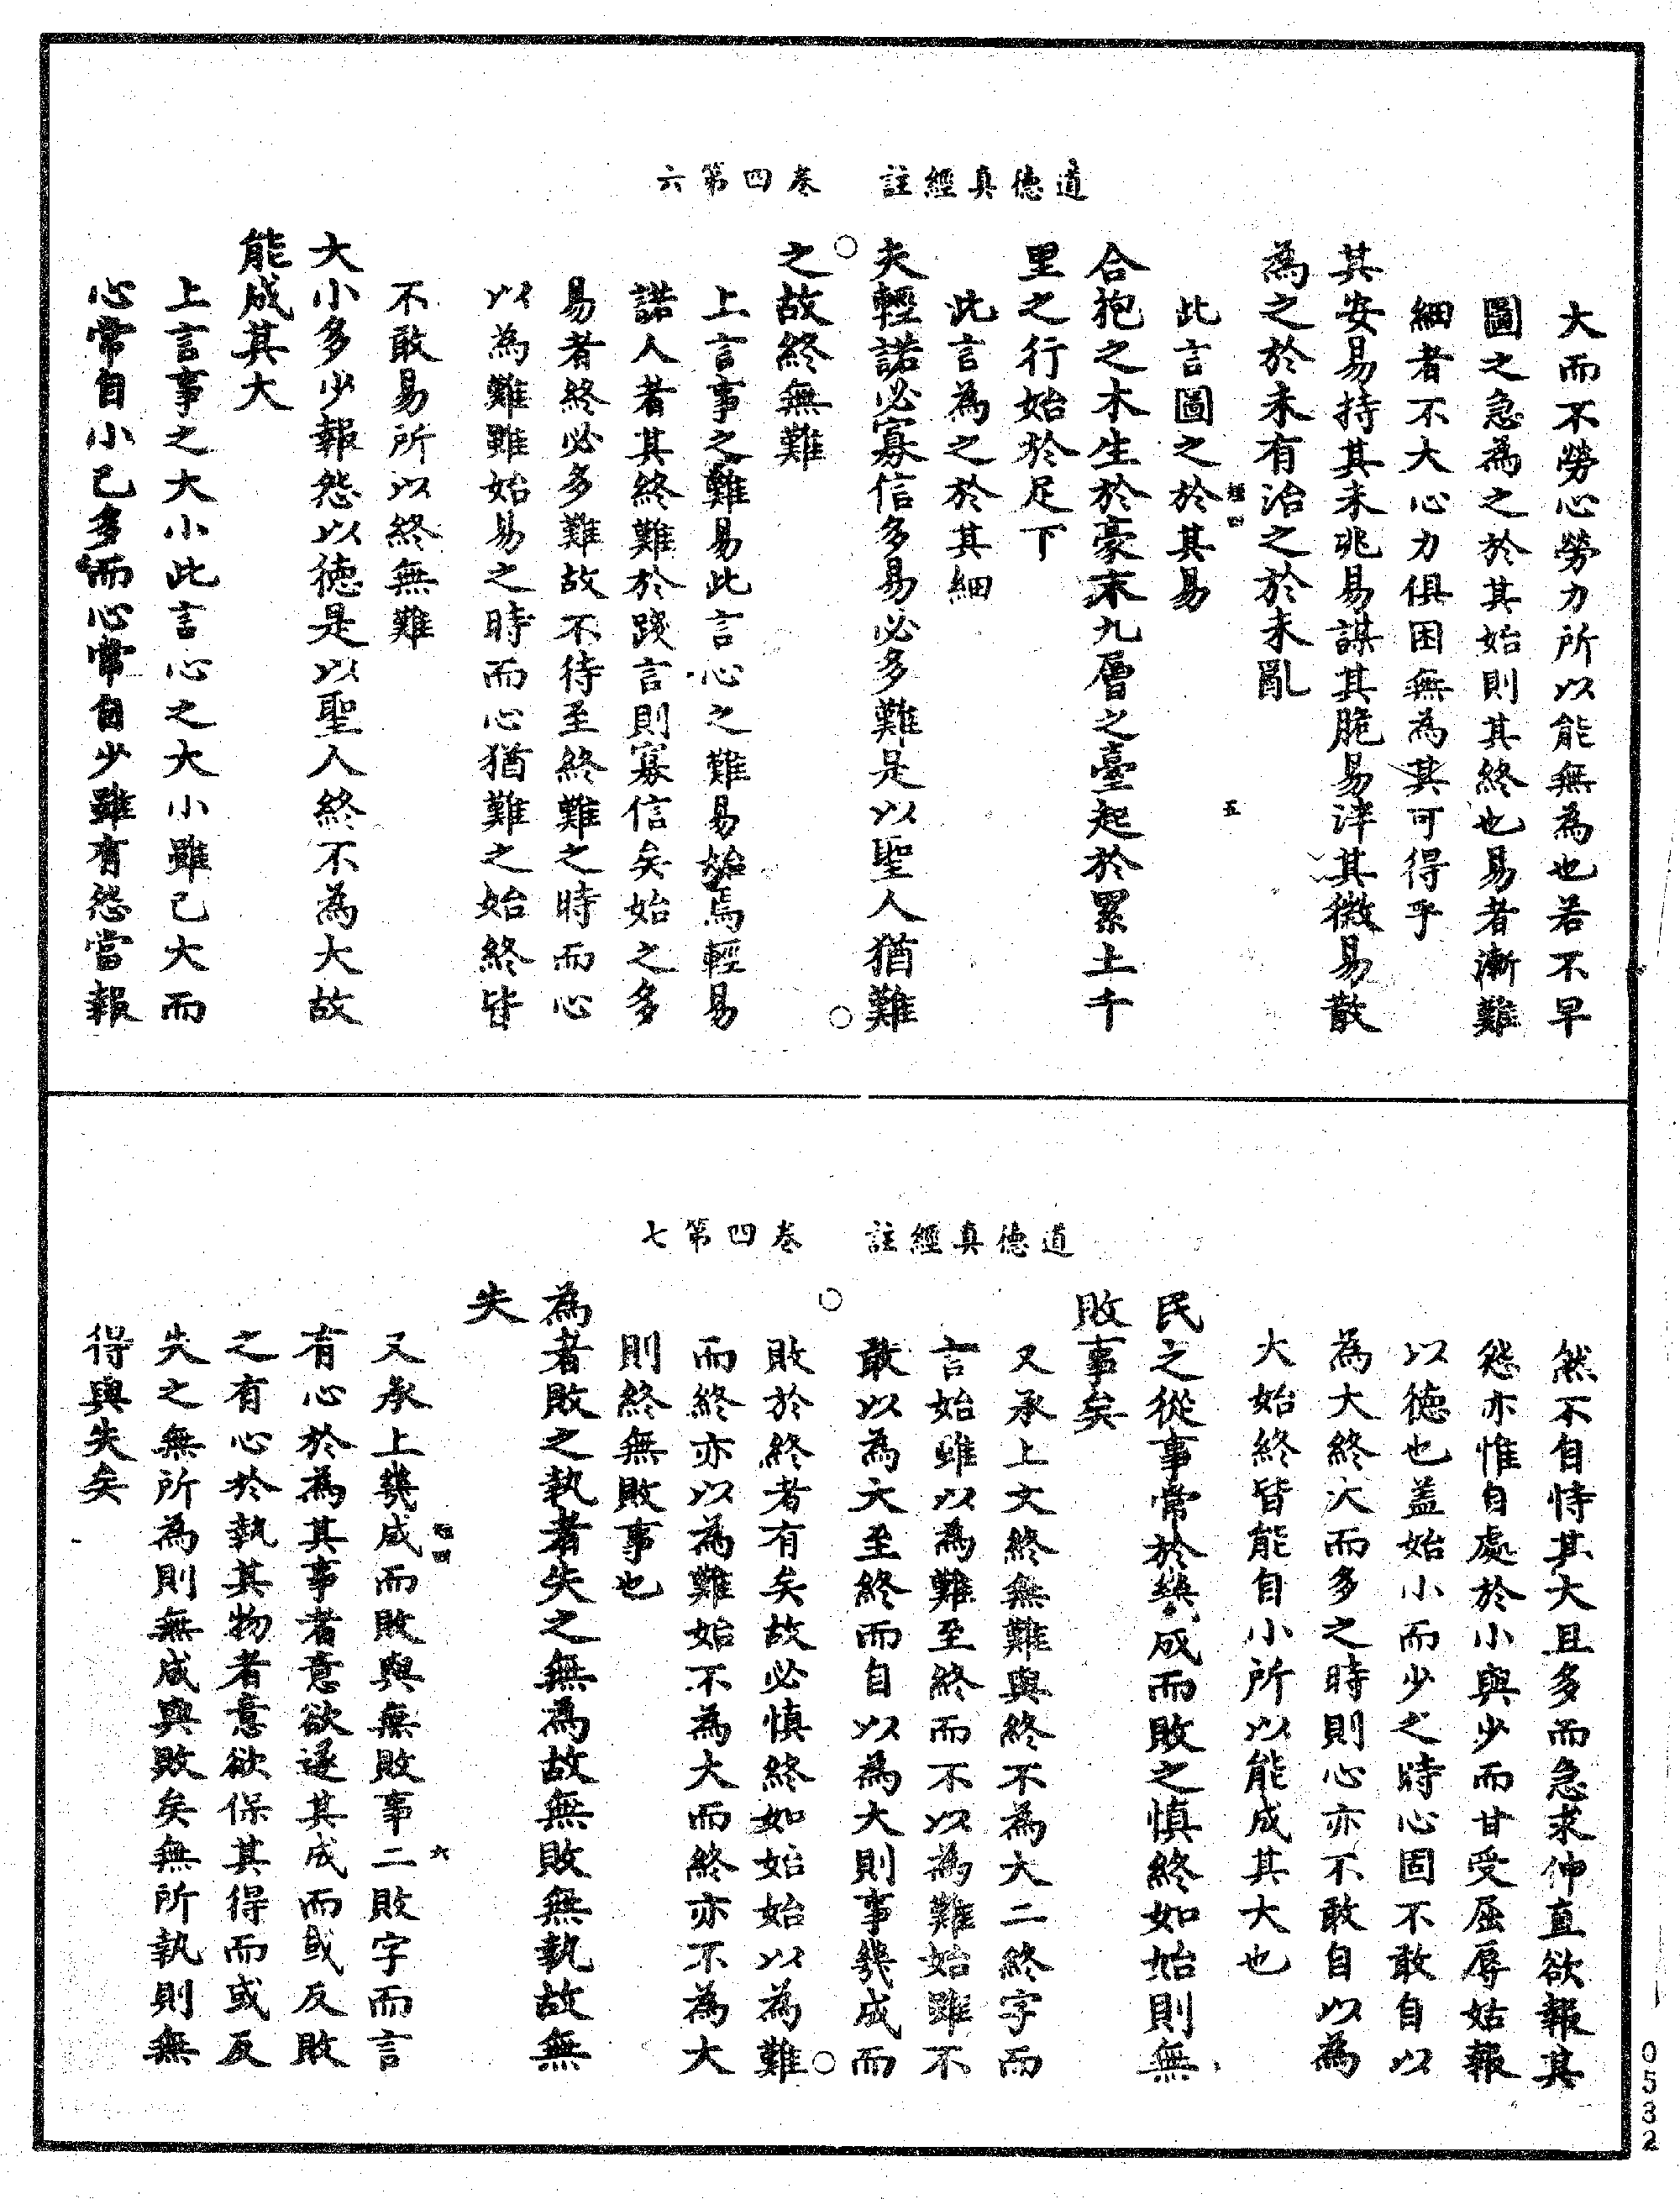 道德真經註　卷四第六
大而不勞心勞力所以能無為也若不早
圖之急為之於其始則其終也易者漸難
細者不大心力俱困無為其可得乎
其安易持其未兆易謀其脆易泮其微易散
為之於未有治之於未亂
此言圖之於其易
五
合抱之木生於豪末九層之臺起於累土千
里之行始於足下
此言為之於其細
夫輕諾必寡信多易必多難是以聖人猶難
之故終無難
上言事之難易此言心之難易始焉輕易
諾人者其終難於踐言則寡信矣始之多
易者終必多難故不待至終難之時而心
以為難雖始易之時而心猶難之始終皆
不敢易所以終無難
大小多少報怨以德是以聖人終不為大故
能成其大
上言事之大小此言心之大小雖已大而
心常自小已多而心常自少雖有怨當報
道德真經註　卷四第七
然不自恃其大且多而急求伸直欲報其
怨亦惟自處於小與少而甘受屈辱姑報
以德也蓋始小而少之時心固不敢自以
為大終大而多之時則心亦不敢自以為
大始終皆能自小所以能成其大也
民之從事常於幾成而敗之慎終如始則無
敗事矣
又承上文終無難與終不為大二終字而
言始雖以為難至終而不以為難始雖不
敢以為大至終而自以為大則事幾成而
敗於終者有矣故必慎終如始始以為難
而終亦以為難始不為大而終亦不為大
則終無敗事也
為者敗之執者失之無為故無敗無執故無
失
又承上幾成而敗與無敗事二敗字而言
六
有心於為其事者意欲遂其成而或反敗
之有心於執其物者意欲保其得而或反
失之無所為則無成與敗矣無所執則無
得與失矣
0532